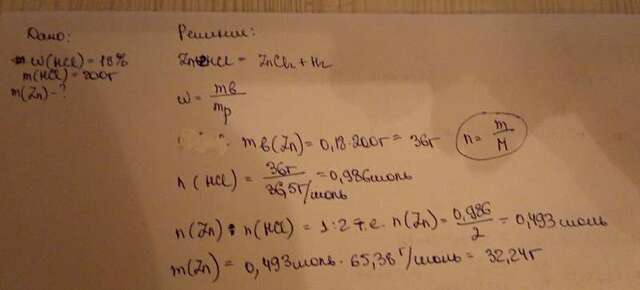 Дано:
w(HCl) = 18%
m(HCl) = 200г
m(Zn) - ?
Решение:
Zn+2HCl = ZnCl₂ + H₂
w = mв / mр
mв(Zn) = 0,18·200г = 36г
n = m / M
n(HCl) = 36г / 36,5г/моль = 0,986моль
n(Zn) : n(HCl) = 1:2 т.е. n(Zn) = 0,986 / 2 = 0,493моль
m(Zn) = 0,493моль · 65,38г/моль = 32,24г